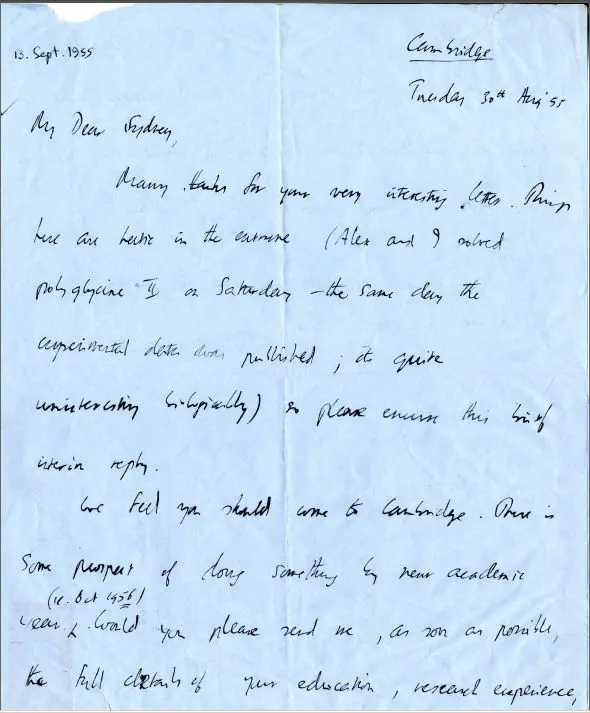 13. Sept. 1955
Cambridge
Tuesday 30th Aug 55
My Dear Sydney,
Many thanks for your very interesting letter. Things
here are hectic in the extreme (Alex and I solved
polyglycine II on Saturday - the same day the
experimental data was published; its quite
uninteresting biologically) so please excuse this brief
interim reply.
We feel you should come to Cambridge. There is
some prospect of doing something by next academic
(ie. Oct 1956)
year. Would you please send me, as soon as possible,
the full details of your education, research experience,